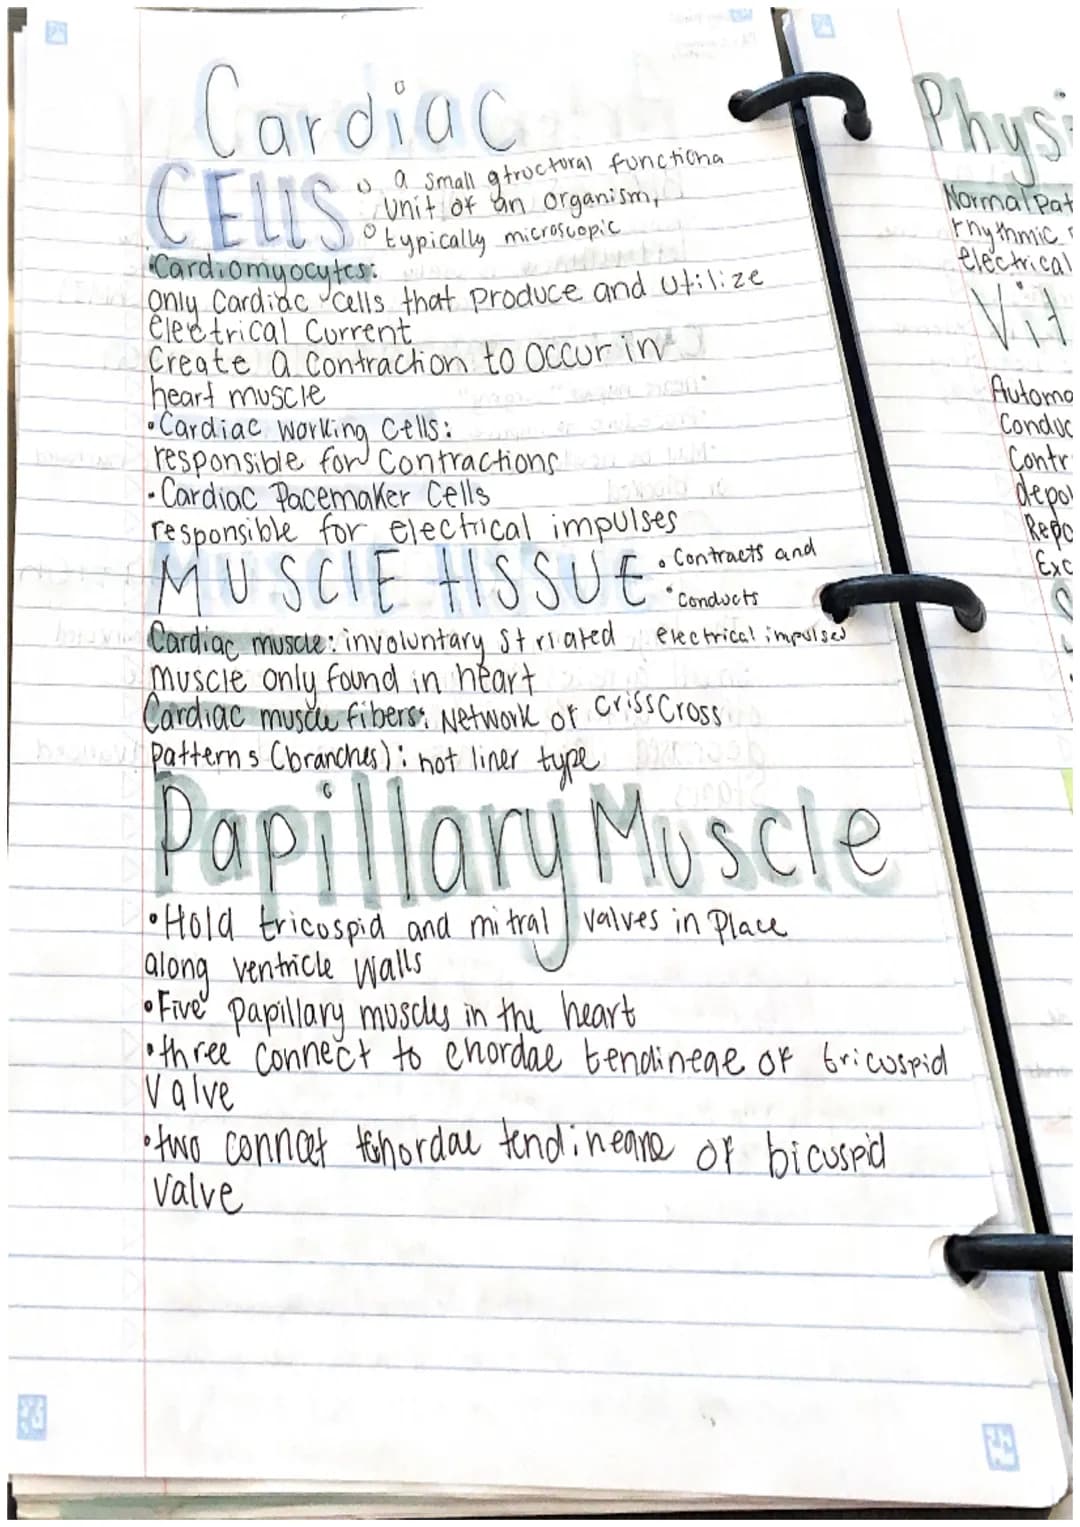 Cardiac
CELLS
a small structural functiona
Unit of an organism,
typically microscopic
•Cardiomyocytes:
only Cardiac cells that produce and utilize
electrical Current
Create a Contraction to occur in
heart muscle
•Cardiac working Cells:
responsible for Contractions
•Cardiac Pacemaker Cells
responsible for electrical impulses
MUSCLE TISSUE
•Contracts and
•Conducts
electrical impulses
Cardiac muscle: involuntary striated
muscle only found in heart
Cardiac muscle fibers: Network of CrissCross
Patterns (branches): not liner type
Papillary Muscle
•Hold tricuspid and mitral valves in Place
along ventricle walls
•Five papillary muscles in the heart
•three connect to chordae tendineae of tricuspid
Valve
•two connect chordae tendineane of bicuspid
valve
Physi
Normal Pat
rhythmic
electrical
Vit
Automa
Conduc
Contr
depol
Repo
Exc